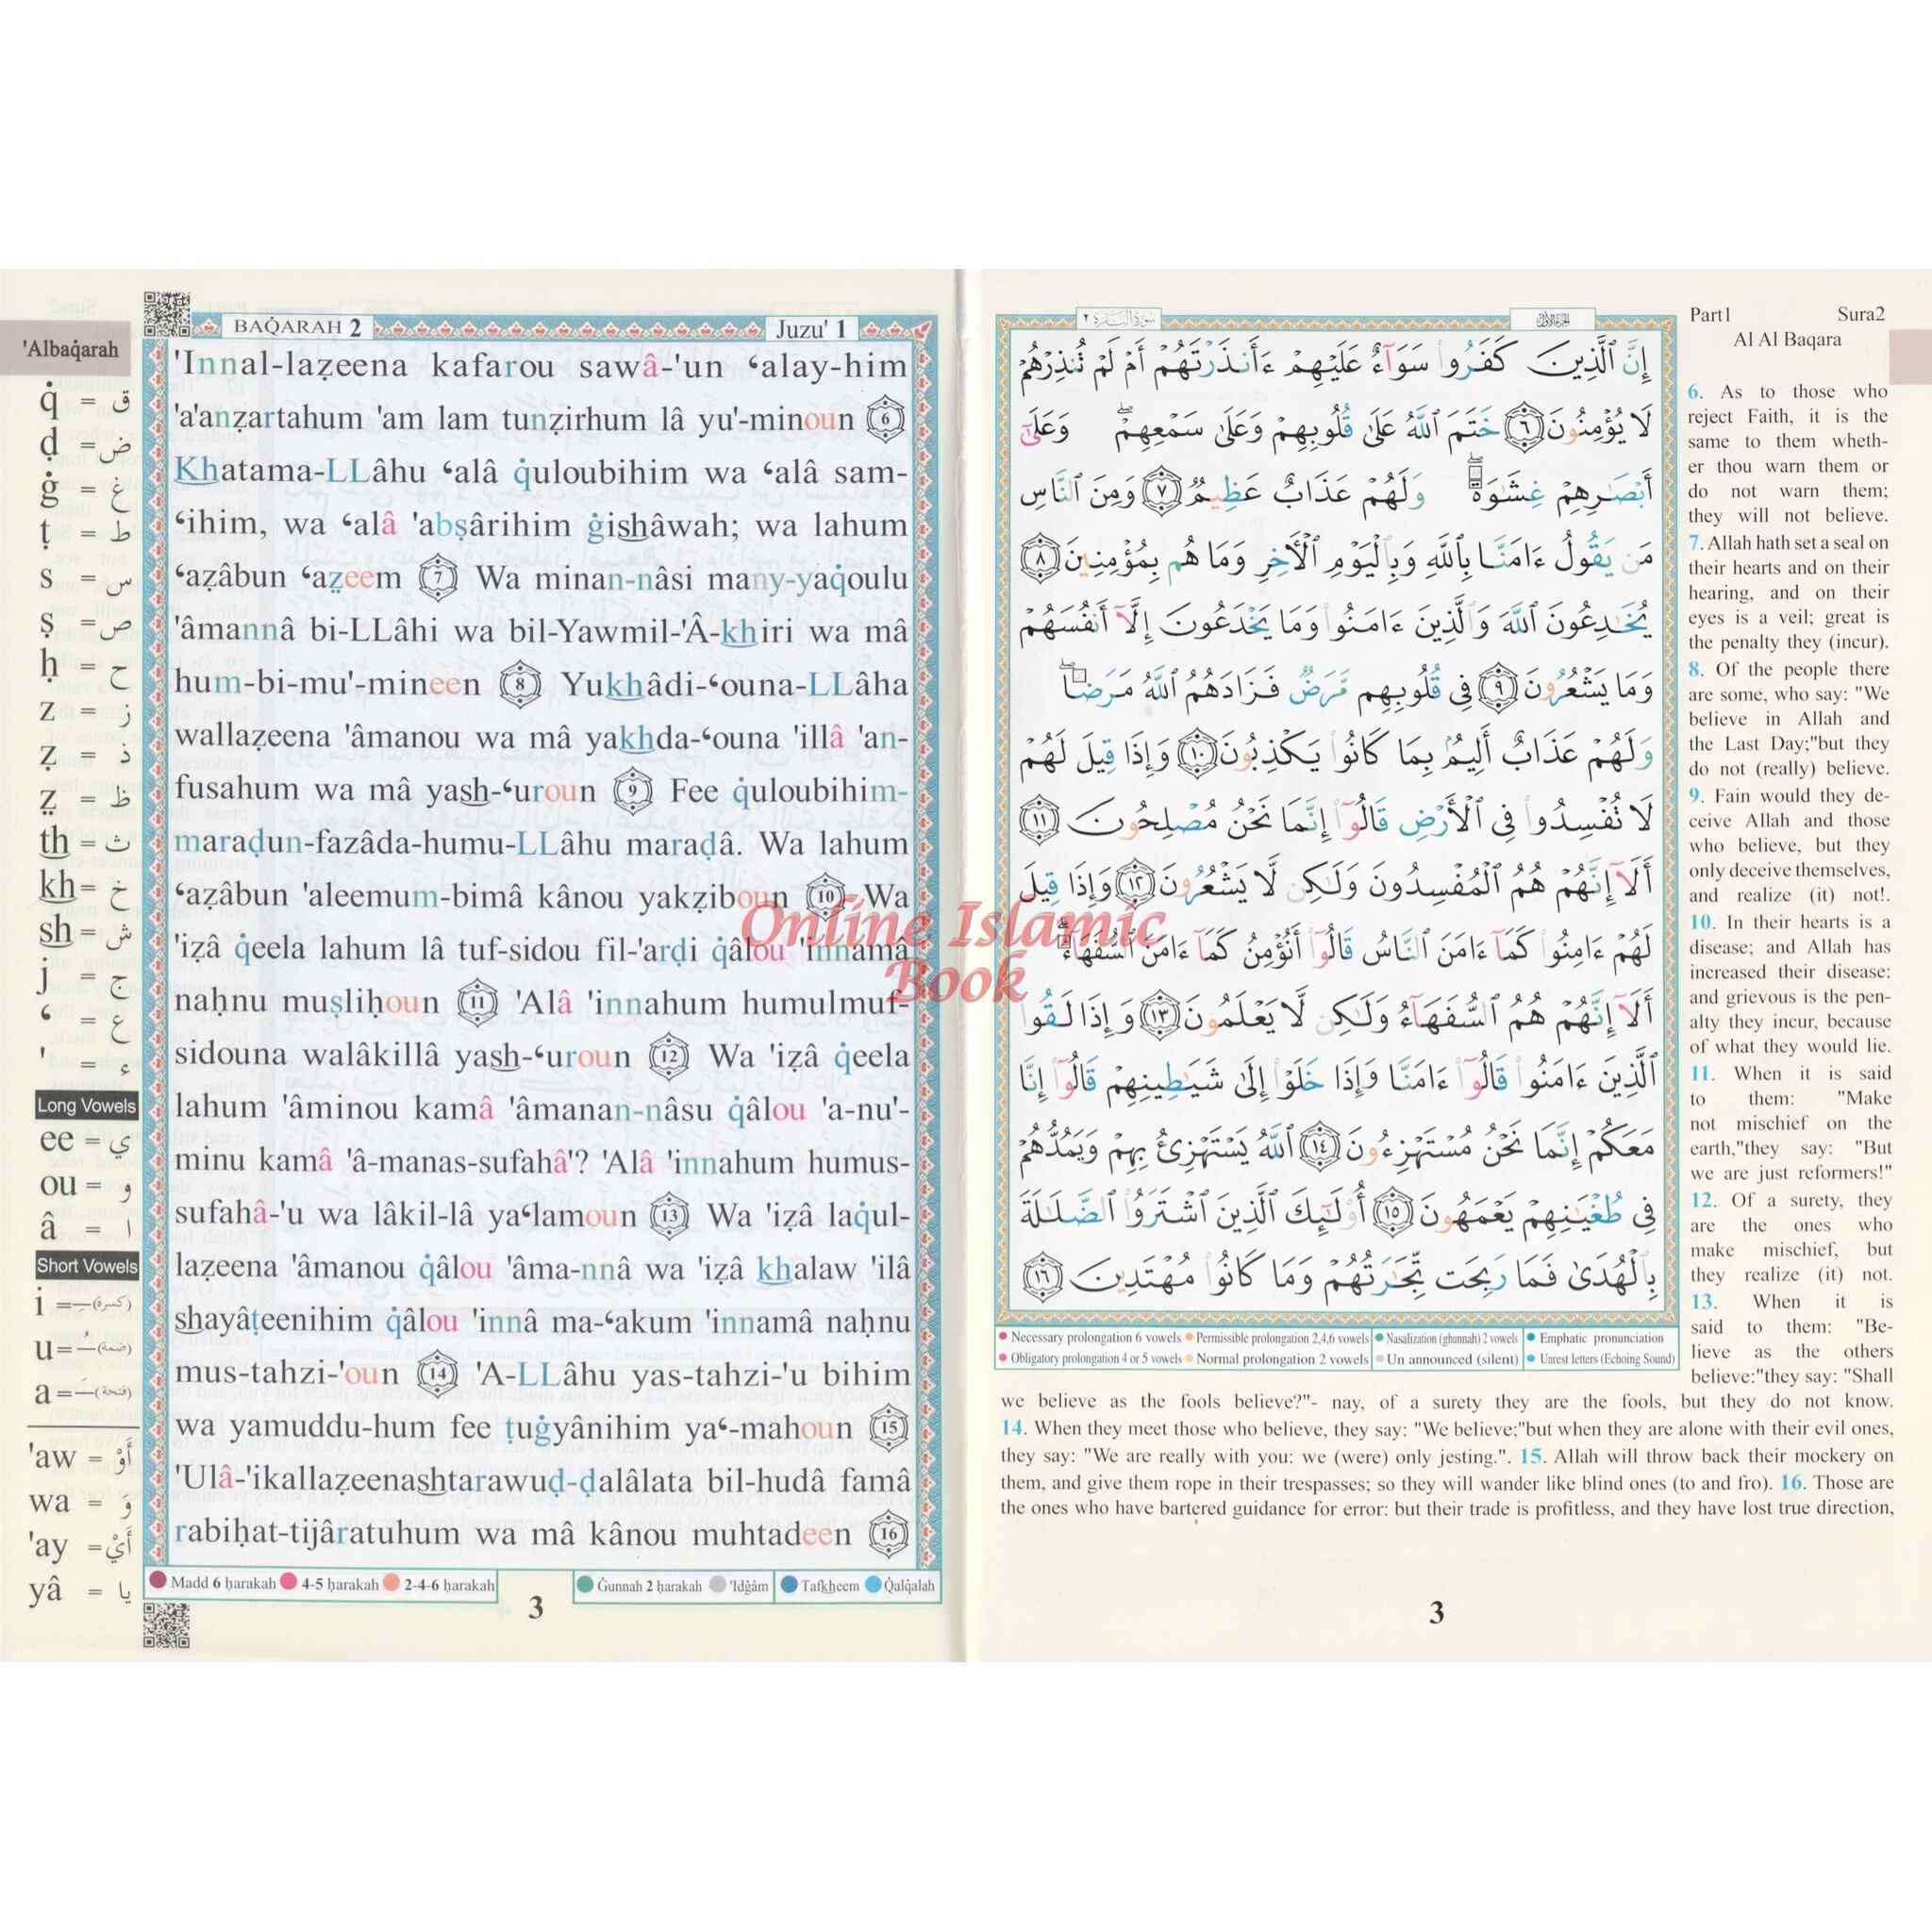 'Albaq̇arah
q̇ = ق
ḍ = ض
ġ = غ
ṭ = ط
s = س
ṣ = ص
ḥ = ح
z = ز
ẓ = ذ
ẓ̤ = ظ
th = ث
kh = خ
sh = ش
j = ج
‘ = ع
' = ء
Long Vowels
ee = ي
ou = و
â = ا
Short Vowels
i = ـِ (كسرة)
u = ـُ (ضمة)
a = ـَ (فتحة)
'aw = أَوْ
wa = وَ
'ay = أَيْ
yâ = يا
BAQ̇ARAH 2
Juzu' 1
'Innal-laẓeena kafarou sawâ-'un ‘alay-him
'a'anẓartahum 'am lam tunẓirhum lâ yu'-minoun 6
Khatama-LLâhu ‘alâ q̇uloubihim wa ‘alâ sam-
‘ihim, wa ‘alâ 'abṣârihim ġishâwah; wa lahum
‘aẓâbun ‘aẓ̤eem 7 Wa minan-nâsi many-yaq̇oulu
'âmannâ bi-LLâhi wa bil-Yawmil-'Â-khiri wa mâ
hum-bi-mu'-mineen 8 Yukhâdi-‘ouna-LLâha
wallaẓeena 'âmanou wa mâ yakhda-‘ouna 'illâ 'an-
fusahum wa mâ yash-‘uroun 9 Fee q̇uloubihim-
maraḍun-fazâda-humu-LLâhu maraḍâ. Wa lahum
‘aẓâbun 'aleemum-bimâ kânou yakẓiboun 10 Wa
'iẓâ q̇eela lahum lâ tuf-sidou fil-'arḍi q̇âlou 'innamâ
naḥnu muṣliḥoun 11 'Alâ 'innahum humulmuf-
sidouna walâkillâ yash-‘uroun 12 Wa 'iẓâ q̇eela
lahum 'âminou kamâ 'âmanan-nâsu q̇âlou 'a-nu'-
minu kamâ 'â-manas-sufahâ'? 'Alâ 'innahum humus-
sufahâ-'u wa lâkil-lâ ya‘lamoun 13 Wa 'iẓâ laq̇ul-
laẓeena 'âmanou q̇âlou 'âma-nnâ wa 'iẓâ khalaw 'ilâ
shayâṭeenihim q̇âlou 'innâ ma-‘akum 'innamâ naḥnu
mus-tahzi-'oun 14 'A-LLâhu yas-tahzi-'u bihim
wa yamuddu-hum fee ṭuġyânihim ya‘-mahoun 15
'Ulâ-'ikallaẓeenashtarawuḍ-ḍalâlata bil-hudâ famâ
rabiḥat-tijâratuhum wa mâ kânou muhtadeen 16
Madd 6 ḥarakah 4-5 ḥarakah 2-4-6 ḥarakah
Ġunnah 2 ḥarakah 'Idġâm Tafkheem Q̇alq̇alah
3
سورة البقرة ٢
الجزء الأول
إِنَّ ٱلَّذِينَ كَفَرُوا۟ سَوَآءٌ عَلَيْهِمْ ءَأَنذَرْتَهُمْ أَمْ لَمْ تُنذِرْهُمْ
لَا يُؤْمِنُونَ ٦ خَتَمَ ٱللَّهُ عَلَىٰ قُلُوبِهِمْ وَعَلَىٰ سَمْعِهِمْ ۖ وَعَلَىٰٓ
أَبْصَـٰرِهِمْ غِشَـٰوَةٌ ۖ وَلَهُمْ عَذَابٌ عَظِيمٌ ٧ وَمِنَ ٱلنَّاسِ
مَن يَقُولُ ءَامَنَّا بِٱللَّهِ وَبِٱلْيَوْمِ ٱلْـَٔاخِرِ وَمَا هُم بِمُؤْمِنِينَ ٨
يُخَـٰدِعُونَ ٱللَّهَ وَٱلَّذِينَ ءَامَنُوا۟ وَمَا يَخْدَعُونَ إِلَّآ أَنفُسَهُمْ
وَمَا يَشْعُرُونَ ٩ فِى قُلُوبِهِم مَّرَضٌ فَزَادَهُمُ ٱللَّهُ مَرَضًا ۖ
وَلَهُمْ عَذَابٌ أَلِيمٌۢ بِمَا كَانُوا۟ يَكْذِبُونَ ١٠ وَإِذَا قِيلَ لَهُمْ
لَا تُفْسِدُوا۟ فِى ٱلْأَرْضِ قَالُوٓا۟ إِنَّمَا نَحْنُ مُصْلِحُونَ ١١
أَلَآ إِنَّهُمْ هُمُ ٱلْمُفْسِدُونَ وَلَـٰكِن لَّا يَشْعُرُونَ ١٢ وَإِذَا قِيلَ
لَهُمْ ءَامِنُوا۟ كَمَآ ءَامَنَ ٱلنَّاسُ قَالُوٓا۟ أَنُؤْمِنُ كَمَآ ءَامَنَ ٱلسُّفَهَآءُ ۗ
أَلَآ إِنَّهُمْ هُمُ ٱلسُّفَهَآءُ وَلَـٰكِن لَّا يَعْلَمُونَ ١٣ وَإِذَا لَقُوا۟
ٱلَّذِينَ ءَامَنُوا۟ قَالُوٓا۟ ءَامَنَّا وَإِذَا خَلَوْا۟ إِلَىٰ شَيَـٰطِينِهِمْ قَالُوٓا۟ إِنَّا
مَعَكُمْ إِنَّمَا نَحْنُ مُسْتَهْزِءُونَ ١٤ ٱللَّهُ يَسْتَهْزِئُ بِهِمْ وَيَمُدُّهُمْ
فِى طُغْيَـٰنِهِمْ يَعْمَهُونَ ١٥ أُو۟لَـٰٓئِكَ ٱلَّذِينَ ٱشْتَرَوُا۟ ٱلضَّلَـٰلَةَ
بِٱلْهُدَىٰ فَمَا رَبِحَت تِّجَـٰرَتُهُمْ وَمَا كَانُوا۟ مُهْتَدِينَ ١٦
Necessary prolongation 6 vowels Permissible prolongation 2,4,6 vowels Nasalization (ghunnah) 2 vowels Emphatic pronunciation
Obligatory prolongation 4 or 5 vowels Normal prolongation 2 vowels Un announced (silent) Unrest letters (Echoing Sound)
Part1 Sura2
Al Al Baqara
6. As to those who
reject Faith, it is the
same to them wheth-
er thou warn them or
do not warn them;
they will not believe.
7. Allah hath set a seal on
their hearts and on their
hearing, and on their
eyes is a veil; great is
the penalty they (incur).
8. Of the people there
are some, who say: "We
believe in Allah and
the Last Day;"but they
do not (really) believe.
9. Fain would they de-
ceive Allah and those
who believe, but they
only deceive themselves,
and realize (it) not!.
10. In their hearts is a
disease; and Allah has
increased their disease:
and grievous is the pen-
alty they incur, because
of what they would lie.
11. When it is said
to them: "Make
not mischief on the
earth,"they say: "But
we are just reformers!"
12. Of a surety, they
are the ones who
make mischief, but
they realize (it) not.
13. When it is
said to them: "Be-
lieve as the others
believe:"they say: "Shall
we believe as the fools believe?"- nay, of a surety they are the fools, but they do not know.
14. When they meet those who believe, they say: "We believe;"but when they are alone with their evil ones,
they say: "We are really with you: we (were) only jesting.". 15. Allah will throw back their mockery on
them, and give them rope in their trespasses; so they will wander like blind ones (to and fro). 16. Those are
the ones who have bartered guidance for error: but their trade is profitless, and they have lost true direction,
3
Online Islamic
Book